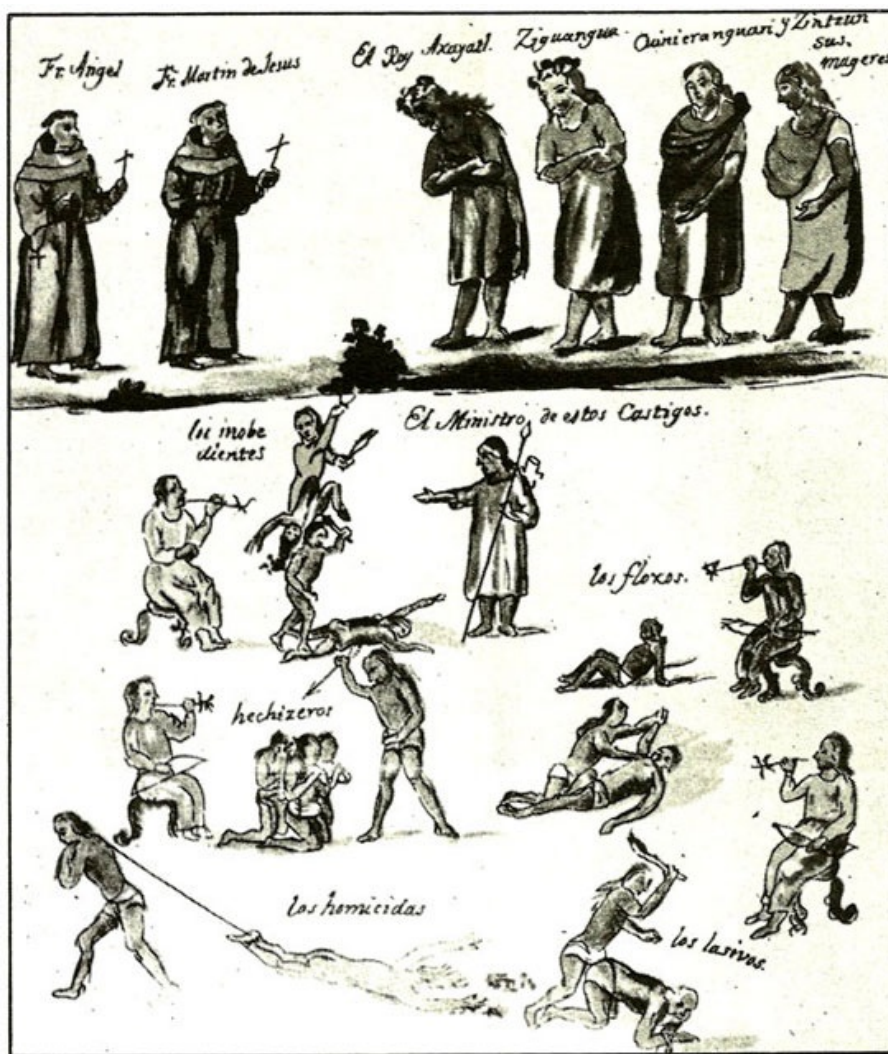 Fr. Angel
Fr. Martin de Jesus
El Rey Axayatl.
Ziguangua.
Cuinieranguari y Zintzun
sus.
mageres
los inobe
dientes
El Ministro de estos Castigos.
los floxos.
hechizeros
los homicidas
los lasivos.